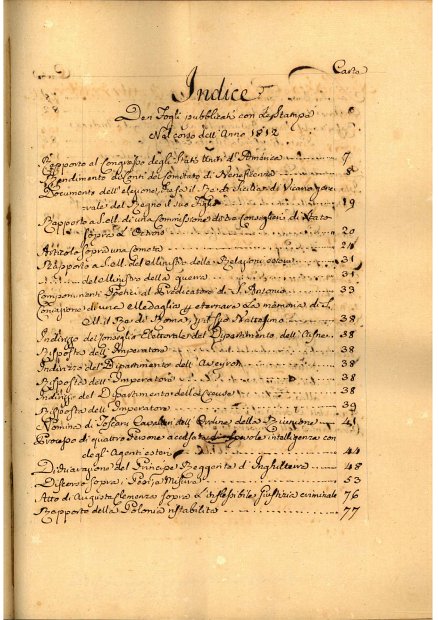 Carta
Indice
Dei Fogli pubblicati con le Stampe
Nel corso dell'Anno 1812
Rapporto al Congresso degli Stati Uniti d'America 7
Rendimento di Conti del Comitato di Beneficenza 8
Documento dell'elezione fatta il Re di Sicilia di Vicario Gene
rale del Regno il suo Figlio 19
Rapporto a S. M. di una Commissione di tre Consiglieri di Stato
sopra 20
Articolo sopra una Cometa 24
Rapporto a S. M. del Ministro delle Relazioni estere 31
del Ministro della Guerra 31
Componimenti Poetici al Predicatore di S. Antonio 33
Coniazione di una Medaglia p. eternare la memoria di S.
M. il Re di Roma, p. il suo Natalizio 38
Indirizzo del Consiglio Elettorale del Dipartimento dell' Aisne 38
Risposta dell' Imperatore 38
Indirizzo del Dipartimento dell' Aveyron 38
Risposta dell' Imperatore 38
Indirizzo del Dipartimento della Creuse 38
Risposta dell' Imperatore 39
Nomina di Toscani Cavalieri dell' Ordine della Riunione 41
Processo di quattro Persone accusate di intelligenza con
degli Agenti esteri 44
Dichiarazione del Principe Reggente d'Inghilterra 48
Discorso sopra i Pesi, e Misure 53
Atto di Augusta Clemenza sopra l'inflessibile Giustizia criminale 76
Rapporto della Polonia ristabilita 77